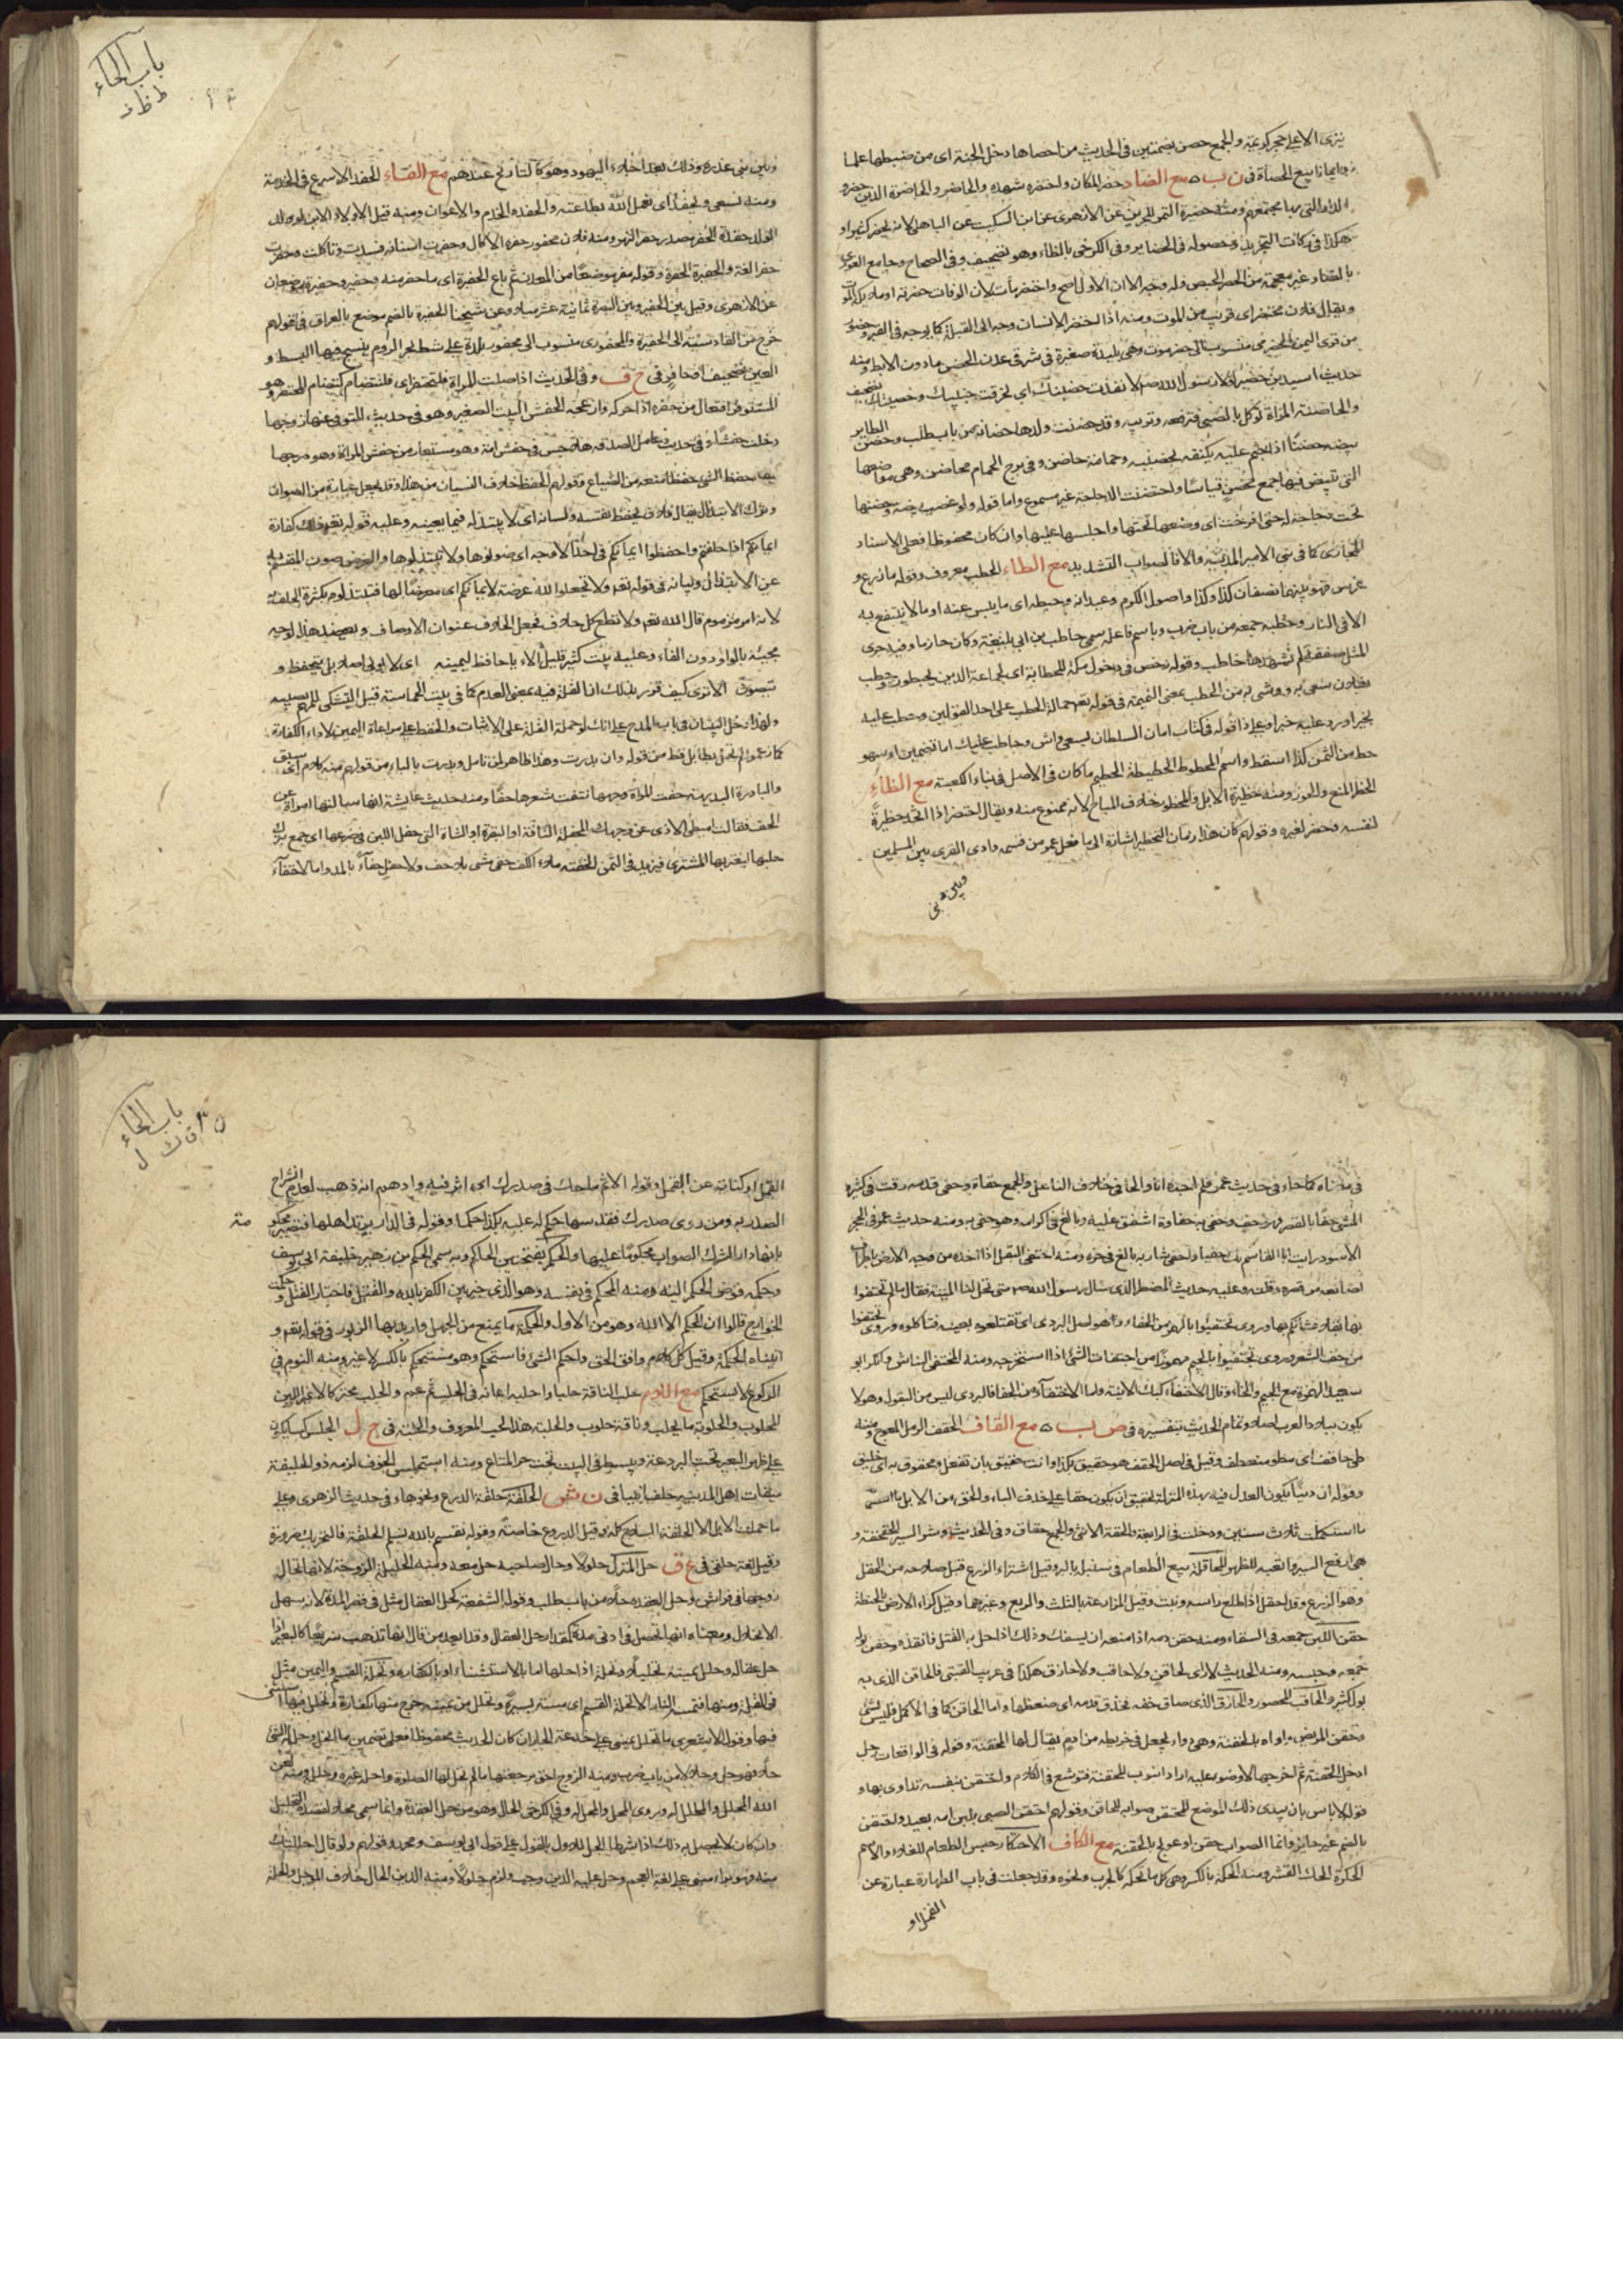 يرى الاعلى حجر كرغيف والجمع حصن بضمتين فى الحديث من احصاها دخل الجنة اى من ضبطها علما
وايمانا بيع الحصاة فى ن ب ه مع الضاد حضر المكان واحتضره شهده والحاضر والحاضرة الذين حضروا
الدار التى بها مجتمعهم ومنه حضيرة التمر للجرين عن الازهرى عن ابن السكيت عن الباهلى لانه
هكذا فى وحصوله فى الحضاير وفى الكرخى بالظاء وهو تصحيف وفى الصحاح وجامع الغورى
بالصاد غير معجمة من الحصر الحبس وله وجه الا ان الاول اصح واحتضر مات لان الوفات حضرته او ملائكة الموت
ويقال فلان محتضر اى قريب من الموت ومنه اذا احتضر الانسان وجه الى القبلة كما يوجه فى القبر وحضور
من قرى اليمن الحضرمى منسوب الى حضرموت وهى بليدة صغيرة فى شرقى عدن الحضن ما دون الابط ومنه
حديث اسيد بن حضير لولا رسول الله صم لانفذت حضنيك اى لخرقت جنبيك وخصييك تصحيف
والحاضنة المراة توكل بالصبى فترفعه وتربيه وقد حضنت ولدها حضانة من باب طلب وحضن الطاير
بيضه حضنا اذا جثم عليه يكنفه بحضنيه وحمامة حاضن وفى برج الحمام محاضن وهى مواضعها
التى تبيض فيها جمع محضن قياسا واحتضنت الدجاجة غير مسموع واما قوله ولو غصب بيضة وحضنها
تحت دجاجة له حتى افرخت اى وضعها تحتها واجلسها عليها وان كان محفوظا فعلى الاسناد
المجازى كما فى بنى الامير المدينة والا فالصواب التشديد مع الطاء الحطب معروف وقوله ما زرع او
غرس فهو بينهما نصفان كذا وكذا واصول الكرم وعيدانه وحطبه اى ما يبس عنه او ما لا ينتفع به
الا فى النار وحطبه جمعه من باب ضرب وباسم فاعله سمى حاطب بن ابى بلتعة وكان حازما وفيه جرى
المثل صفقة لم يشهدها حاطب وقوله رخص فى دخول مكة للحطابة اى لجماعة الذين يحطبون وحطب
بفلان سعى به ووشى به من الحطب بمعنى النميمة فى قوله تعم حمالة الحطب على احد القولين وحطب عليه
بخير اورد عليه خبرا وعلى ذا قوله فى كتاب امان السلطان لسعى واش وحاطب عليك اما تضمين او سهو
حط من الثمن كذا اسقط واسم المحطوط الحطيطة الحطيم ما كان فى الاصل فى بناء الكعبة مع الظاء
الحظر المنع والحوز ومنه حظيرة الابل والمحظور خلاف المباح لانه ممنوع منه ويقال احتظر اذا اتخذ حظيرة
لنفسه وحظر لغيره وقولهم كان هذا زمان التحظير اشارة الى ما فعل عمر من قسمة وادى القرى بين المسلمين
وبين بنى
باب الحاء
ط ظ ف
وبين بنى عذرة وذلك بعد اجلاء اليهود وهو كالتاريخ عندهم مع الفاء الحفد الاسراع فى الخدمة
ومنه نسعى ونحفد اى نعمل لله بطاعته والحفدة الخدم والاعوان ومنه قيل لاولاد الابن او لولد
الولد حفدة الحفر مصدر حفر النهر ومنه فلان محفور حفره الاكال وحفرت اسنانه فسدت وتاكلت وحفرت
حفرا لغة والحفيرة الحفرة وقوله حفر موضعا من المعدن ثم باع الحفيرة اى ما حفر منه وحفير وحفيرة موضعان
عن الازهرى وقيل بين الحفير وبين البصرة ثمانية عشر ميلا وعن شيخنا الحفيرة بالضم موضع بالعراق فى قولهم
خرج من القادسية الى الحفيرة والمحفورى منسوب الى محفور بلدة على شط بحر الروم ينسج فيها البسط و
العين تصحيف الحافر فى خ ف وفى الحديث اذا صلت المراة فلتحتفز اى فلتتضام كتضام المحتفز وهو
المستوفز افتعال من حفزه اذا حركه وازعجه الحفش البيت الصغير وهو فى حديث المتوفى عنها زوجها
دخلت حفشا وفى حديث عامل الصدقة هلا جلس فى حفش امه وهو مستعار من حفش المراة وهو درجها
حفظ الشئ حفظا منعه من الضياع وقولهم الحفظ خلاف النسيان من هذا وقد يجعل عبارة من الصون
وترك الابتذال يقال فلان يحفظ نفسه ولسانه اى لا يبتذله فيما يعينه وعليه قوله تعم ذلك كفارة
ايمانكم اذا حلفتم واحفظوا ايمانكم فى احد الاوجه اى صونوها ولا تبتذلوها والغرض صون المقسم به
عن الابتذال وبيانه فى قوله تعم ولا تجعلوا الله عرضة لايمانكم اى معرضا لها فتبتذلوه بكثرة الحلف به
لانه امر مذموم قال الله تعم ولا تطع كل حلاف فجعل الحلاف عنوان الاوصاف ويعضد هذا الوجه
مجيئه بالواو دون الفاء وعليه بيت كثير قليل الالاء يا حافظ ليمينه اى لا يولى اصلا بل يتحفظ و
يتصون الا ترى كيف قرر بذلك ان القلة فيه بمعنى العدم كما فى بيت الحماسة قليل التشكى للمهم يصيبه
ولهذا دخل البيتان فى باب المدح على انك لو حملت القلة على الاثبات والحفظ على مراعاة اليمين لاداء الكفارة
كما زعموا لم تحل بطايل قط من قوله وان بدرت وهذا ظاهر لمن تامل وبدرت بالباء من قولهم منه كلام اى سبق
والبادرة البديهة حفت المراة وجهها نتفت شعرها حفا ومنه حديث عايشة انها سالتها امراة عن
الحف فقالت اميطى الاذى عن وجهك المحفلة الناقة او البقرة او الشاة التى حفل اللبن فى ضرعها اى جمع بترك
حلبها ليغتر بها المشترى فيزيد فى الثمن الحفنة ملء الكف حفى مشى بلا خف ولا نعل حفاء بالمد واما الاحتفاء
فى معناه كما جاء فى حديث عمر فلم اجده انا والحافى خلاف الناعل والجمع حفاة وحفى قدمه رقت من كثرة
المشى حفا بالقصر فهو حف وحفى به حفاوة اشفق عليه وبالغ فى اكرامه وهو حفى به ومنه حديث عمر فى الحجر
الاسود رايت ابا القاسم بك حفيا واحفى شاربه بالغ فى جزه ومنه احتفى البقل اذا اخذه من وجه الارض باطراف
اصابعه من قصره وقلته وعليه حديث المضطر الذى سال رسول الله صم متى تحل لنا الميتة فقال ما لم تحتفوا
بها بقلا فشانكم بها وروى تحتفئوا بالهمز من الحفاء وهو اصل البردى اى تقتلعوه بعينه فتاكلوه وروى تحتفوا
من حف الشعر وروى تجتفئوا بالجيم مهموزا من اجتفات الشئ اذا استخرجته ومنه المختفى النباش وانكر ابو
سعيد الهمزة مع الجيم والحاء وقال الاحتفاء كبك الانية واما الاحتفاء من الحفا فالبردى ليس من البقول وهو لا
يكون ببلاد العرب اصلا وتمام الحديث بتفسيره فى ص ب ه مع القاف الحقف الرمل المعوج ومنه
ظبى حاقف اى منعطف وقيل فى اصل الحقف هو حقيق بكذا وانت حقيق بان تفعل ومحقوق به اى خليق
وقوله ان دنيا يكون العدل فيه بهذه المنزلة لحقيق ان يكون حقا على حذف الباء والحق من الابل
ما استكمل ثلاث سنين ودخلت فى الرابعة والحقة الانثى والجمع حقاق وفى الحديث وشر السير الحقحقة و
هى ارفع السير واتعبه للظهر المحاقلة بيع الطعام فى سنبله بالبر وقيل اشتراء الزرع قبل صلاحه من الحقل
وهو الزرع وقد احقل اذا طلع راسه ونبت وقيل المزارعة بالثلث والربع وغيرهما وقيل كراء الارض بالحنطة
حقن اللبن جمعه فى السقاء ومنه حقن دمه اذا منعه ان يسفك وذلك اذا حل به القتل فانقذه وحقن بوله
جمعه وحبسه ومنه الحديث لا راى لحاقن ولا حاقب ولا حازق هكذا فى غريب القتبى فالحاقن الذى به
بول كثير والحاقب المحصور والحازق الذى ضاق خفه فحذق قدمه اى ضغطها واما الحاقن كما فى الاكمل فليس بشئ
وحقن المريض داواه بالحقنة وهى دواء يجعل فى خريطة من ادم يقال لها المحقنة وقوله فى الواقعات رجل
ادخل الحقنة ثم اخرجها لا وضوء عليه اراد انبوب المحقنة فتوسع فى الكلام واحتقن بنفسه تداوى بها و
قوله لا باس بان يبدى ذلك الموضع للمحتقن صوابه للحاقن وقولهم احتقن الصبى بلبن امه بعيد واحتقن
بالضم غير جايز وانما الصواب حقن او عولج بالحقنة مع الكاف الاحتكار حبس الطعام للغلاء والاسم
الحكرة الحك القشر ومنه الحكة بالكسر وهى كل ما تحكه كالجرب ونحوه وقد جعلت فى باب الطهارة عبارة عن
القمل او
باب الحاء
ف ق ك ل
القمل او كناية عن القمل وقوله الاثم ما حك فى صدرك اى اثر فيه واوهم انه ذهب لعدم انشراح
الصدر به ومن روى صدرك فقد سها حكم له عليه بكذا حكما وقوله فى الدار يرتد اهلها فتصير محكوم
بانها دار الشرك الصواب محكوما عليها والحكم بفتحتين الحاكم وبه سمى الحكم بن زهير خليفة ابى يوسف
وحكمه فوض الحكم اليه ومنه المحكم فى نفسه وهو الذى خير بين الكفر بالله والقتل فاختار القتل وحكمت
الخوارج قالوا ان الحكم الا لله وهو من الاول والحكمة ما يمنع من الجهل واريد بها الزبور فى قوله تعم و
اتيناه الحكمة وقيل كل كلام وافق الحق واحكم الشئ فاستحكم وهو مستحكم بالكسر لا غير ومنه النوم فى
الركوع لا يستحكم مع اللام حلب الناقة حلبا واحلبه اعانه فى الحلب ثم عم والحلب محركا لا غير اللبن
المحلوب والحلوبة ما يحلب وناقة حلوب والحلبة هذا الحب المعروف والحلبة فى ج ل الحلس كساء يكون
على ظهر البعير تحت البردعة ويبسط فى البيت تحت حر المتاع ومنه استحلس الخوف لزمه ذو الحليفة
ميقات اهل المدينة حلفا فى ن ش الحلقة حلقة الدرع وغيرها وفى حديث الزهرى وعلى
ما حملت الابل الا الحلقة السلاح كله وقيل الدروع خاصة وقوله نقسم بالله نسلم الحلقة فالتحريك ضرورة
وقيل لغة حلقى فى ع ق حل المنزل حلولا وحال صاحبه حل معه ومنه الحليلة الزوجة لانها تحال
زوجها فى فراش وحل العقدة حلا من باب طلب وقوله الشفعة كحل العقال مثل فى قصر المدة لانه سهل
الانحلال ومعناه انها تحصل فى ادنى مدة كمقدار حل العقال وقد ابعد من قال انها تذهب سريعا كالبعير اذا
حل عقاله وحلل يمينه تحليلا وتحلة اذا حلها اما بالاستثناء او بالكفارة وتحلة القسم واليمين مثل
فى القلة ومنها فتمسه النار الا تحلة القسم اى مسة يسيرة وتحلل من يمينه خرج منها بكفارة وتحلل فيها استثنى
فيها وقول الاشعرى ما تحلل يمينى على خدعة الجار ان كان الحديث محفوظا فعلى تضمين ما انحل وحل له الشئ
حلا فهو حل وحلال من باب ضرب ومنه الزوج احق برجعتها ما لم تحل لها الصلوة واحله غيره وحلله ومنه لعن
الله المحلل والمحلل له وروى المحل والمحل له وفى الكرخى الحال وهو من حل العقدة وانما سمى محللا لقصده التحليل
وان كان لا يحصل به ذلك اذا شرطا الحل للاول بالقول على قول ابى يوسف ومحمد وقولهم ولو قال احللتك
منه فهو براء مبنى على لغة العجم وحل عليه الدين وجب ولزم حلولا ومنه الدين الحال خلاف المؤجل والحلة